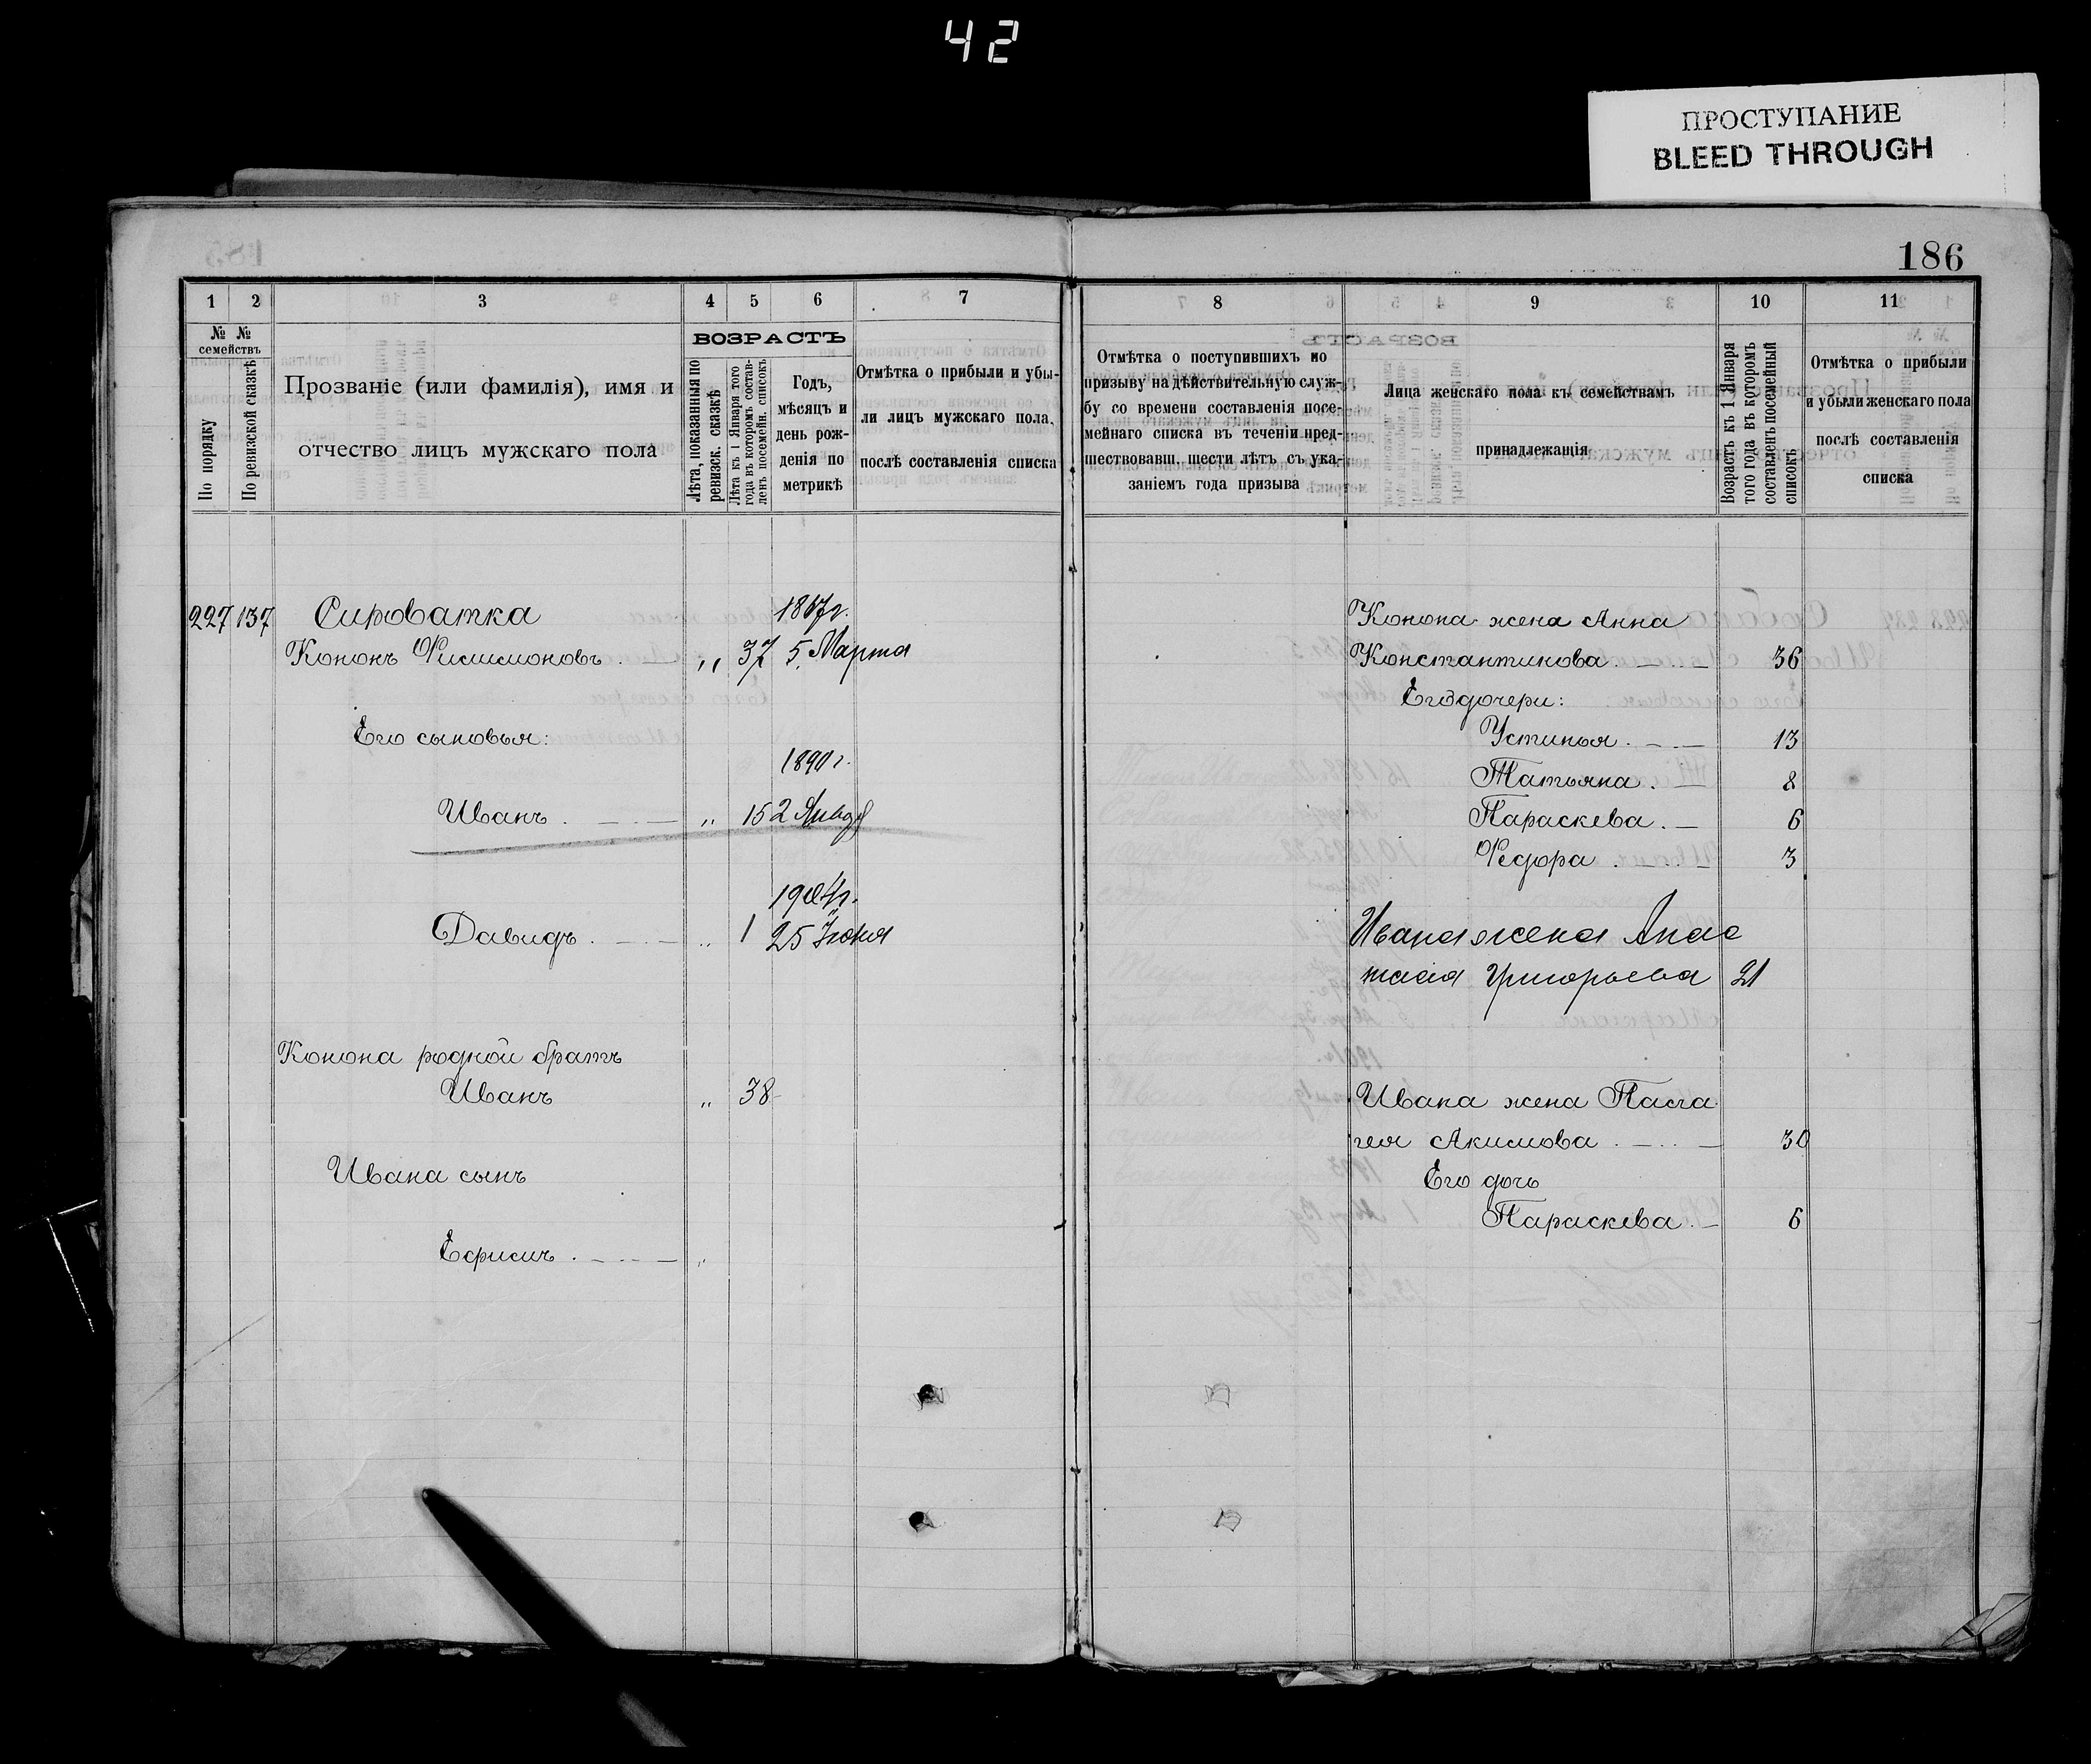 42
ПРОСТУПАНИЕ
BLEED THROUGH
186
1 2 3 4 5 6 7
№ № семействъ
По порядку
По ревизской сказкѣ
Прозваніе (или фамилія), имя и
отчество лицъ мужскаго пола
ВОЗРАСТЪ
Лѣта, показанныя по
ревизск. сказкѣ
Лѣта къ 1 Января того
года въ которомъ состав-
ленъ посемейн. списокъ
Годъ,
мѣсяцъ и
день рож-
денія по
метрикѣ
Отмѣтка о прибыли и убы-
ли лицъ мужскаго пола,
послѣ составленія списка
227 137 Сироватка 1867 г.
Кононъ Филимоновъ „ 37 5 Марта
Его сыновья:
1890 г.
Иванъ „ 15 2 Январ
1904 г.
Давидъ „ 1 25 Іюня
Конона родной братъ
Иванъ „ 38
Ивана сынъ
Ефимъ „
8 9 10 11
Отмѣтка о поступившихъ по
призыву на дѣйствительную служ-
бу со времени составленія посе-
мейнаго списка въ теченіи пред-
шествовавш. шести лѣтъ съ ука-
заніемъ года призыва
Лица женскаго пола къ семействамъ
принадлежащія
Возрастъ къ 1 Января
того года въ которомъ
составленъ посемейный
списокъ
Отмѣтка о прибыли
и убыли женскаго пола
послѣ составленія
списка
Конона жена Анна
Константинова 36
Его дочери:
Устинья 13
Татьяна 8
Параскева 6
Федора 3
Ивана жена Анас
тасія Григорьева 21
Ивана жена Пела
гея Акимова 30
Его дочь
Параскева 6